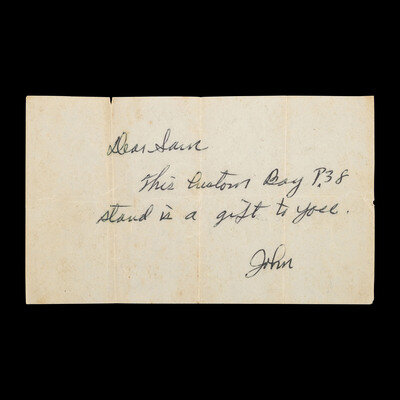 Dear Sam
This Custom Bay P.38
stand is a gift to you.
John